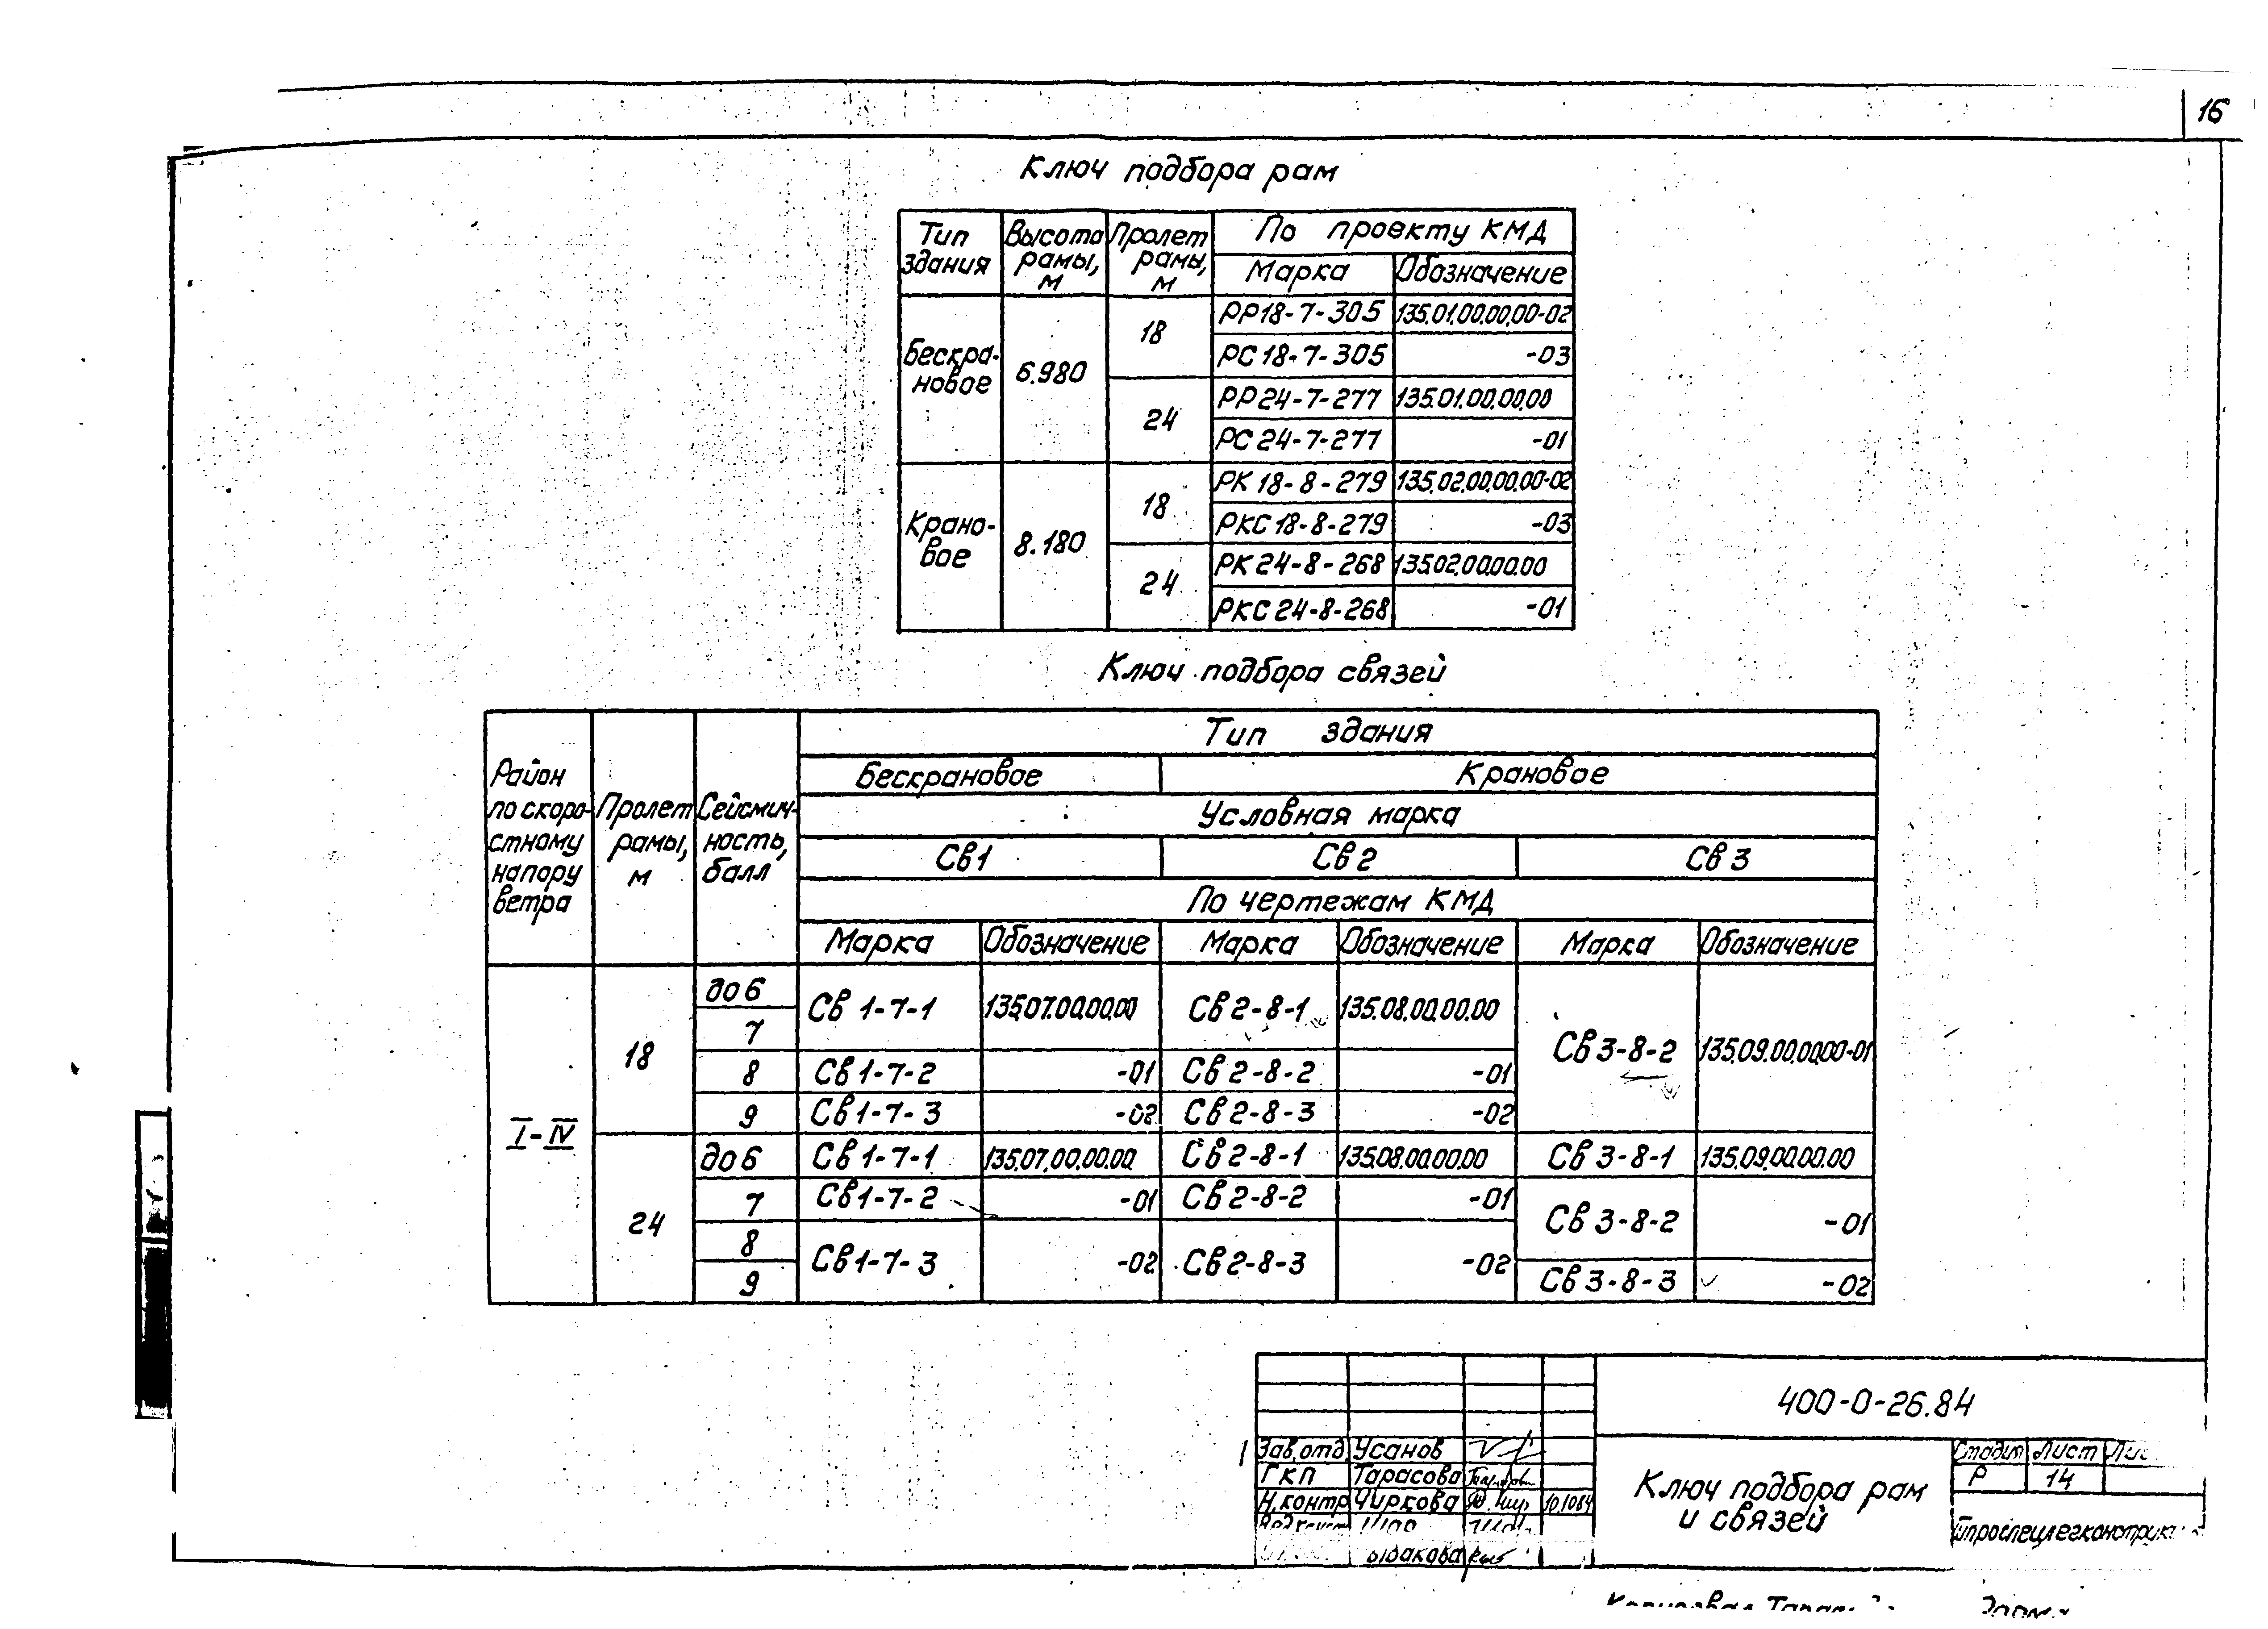 16
Ключ подбора рам
Тип здания | Высота рамы, м | Пролет рамы, м | По проекту КМД
Марка | Обозначение
Бескра-новое | 6.980 | 18 | РР18-7-305 | 135.01.00.00.00-02
РС18-7-305 | -03
24 | РР24-7-277 | 135.01.00.00.00
РС24-7-277 | -01
Крано-вое | 8.180 | 18 | РК 18-8-279 | 135.02.00.00.00-02
РКС18-8-279 | -03
24 | РК24-8-268 | 135.02.00.00.00
РКС24-8-268 | -01
Ключ подбора связей
Район по скоро-стному напору ветра | Пролет рамы, м | Сейсмич-ность, балл | Тип здания
Бескрановое | Крановое
Условная марка
Св1 | Св2 | Св3
По чертежам КМД
Марка | Обозначение | Марка | Обозначение | Марка | Обозначение
I-IV | 18 | до 6 | Св 1-7-1 | 135.07.00.00.00 | Св2-8-1 | 135.08.00.00.00 | Св3-8-2 | 135.09.00.00.00-01
7
8 | Св1-7-2 | -01 | Св2-8-2 | -01
9 | Св1-7-3 | -02 | Св2-8-3 | -02
24 | до 6 | Св1-7-1 | 135.07.00.00.00 | Св2-8-1 | 135.08.00.00.00 | Св3-8-1 | 135.09.00.00.00
7 | Св1-7-2 | -01 | Св2-8-2 | -01 | Св3-8-2 | -01
8 | Св1-7-3 | -02 | Св2-8-3 | -02
9 | Св3-8-3 | -02
400-0-26.84
Зав.отд. Усанов
ГКП Тарасова
Н.контр Чиркова 10.1084
Ключ подбора рам
и связей
Стадия Лист
Р 14